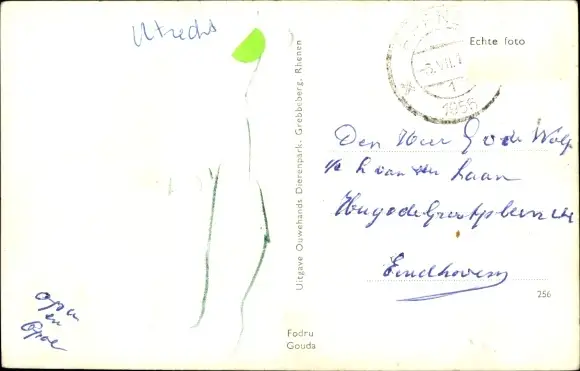 Utrecht
Echte foto
5.VII.1
1
1956
Den Heer G de Wolf
p/a h van der Laan
Hugo de Grootplein
Eindhoven
256
Uitgave Ouwehands Dierenpark, Grebbeberg, Rhenen
opa
en
Opoe
Fodru
Gouda